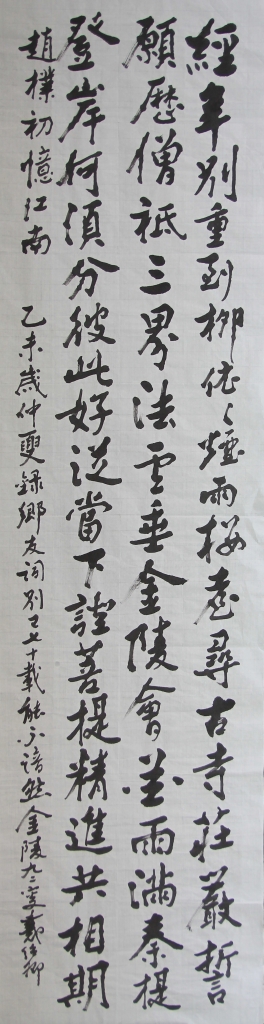 經年別重到柳依々煙雨楼臺尋古寺莊嚴誓
願歷僧祇三界法雲垂金陵會花雨滿秦堤
登岸何須分彼此好從當下證菩提精進共相期
趙樸初憶江南
乙未歲仲夏錄鄉友詞別已七十載能不諳然金陵九二叟戴